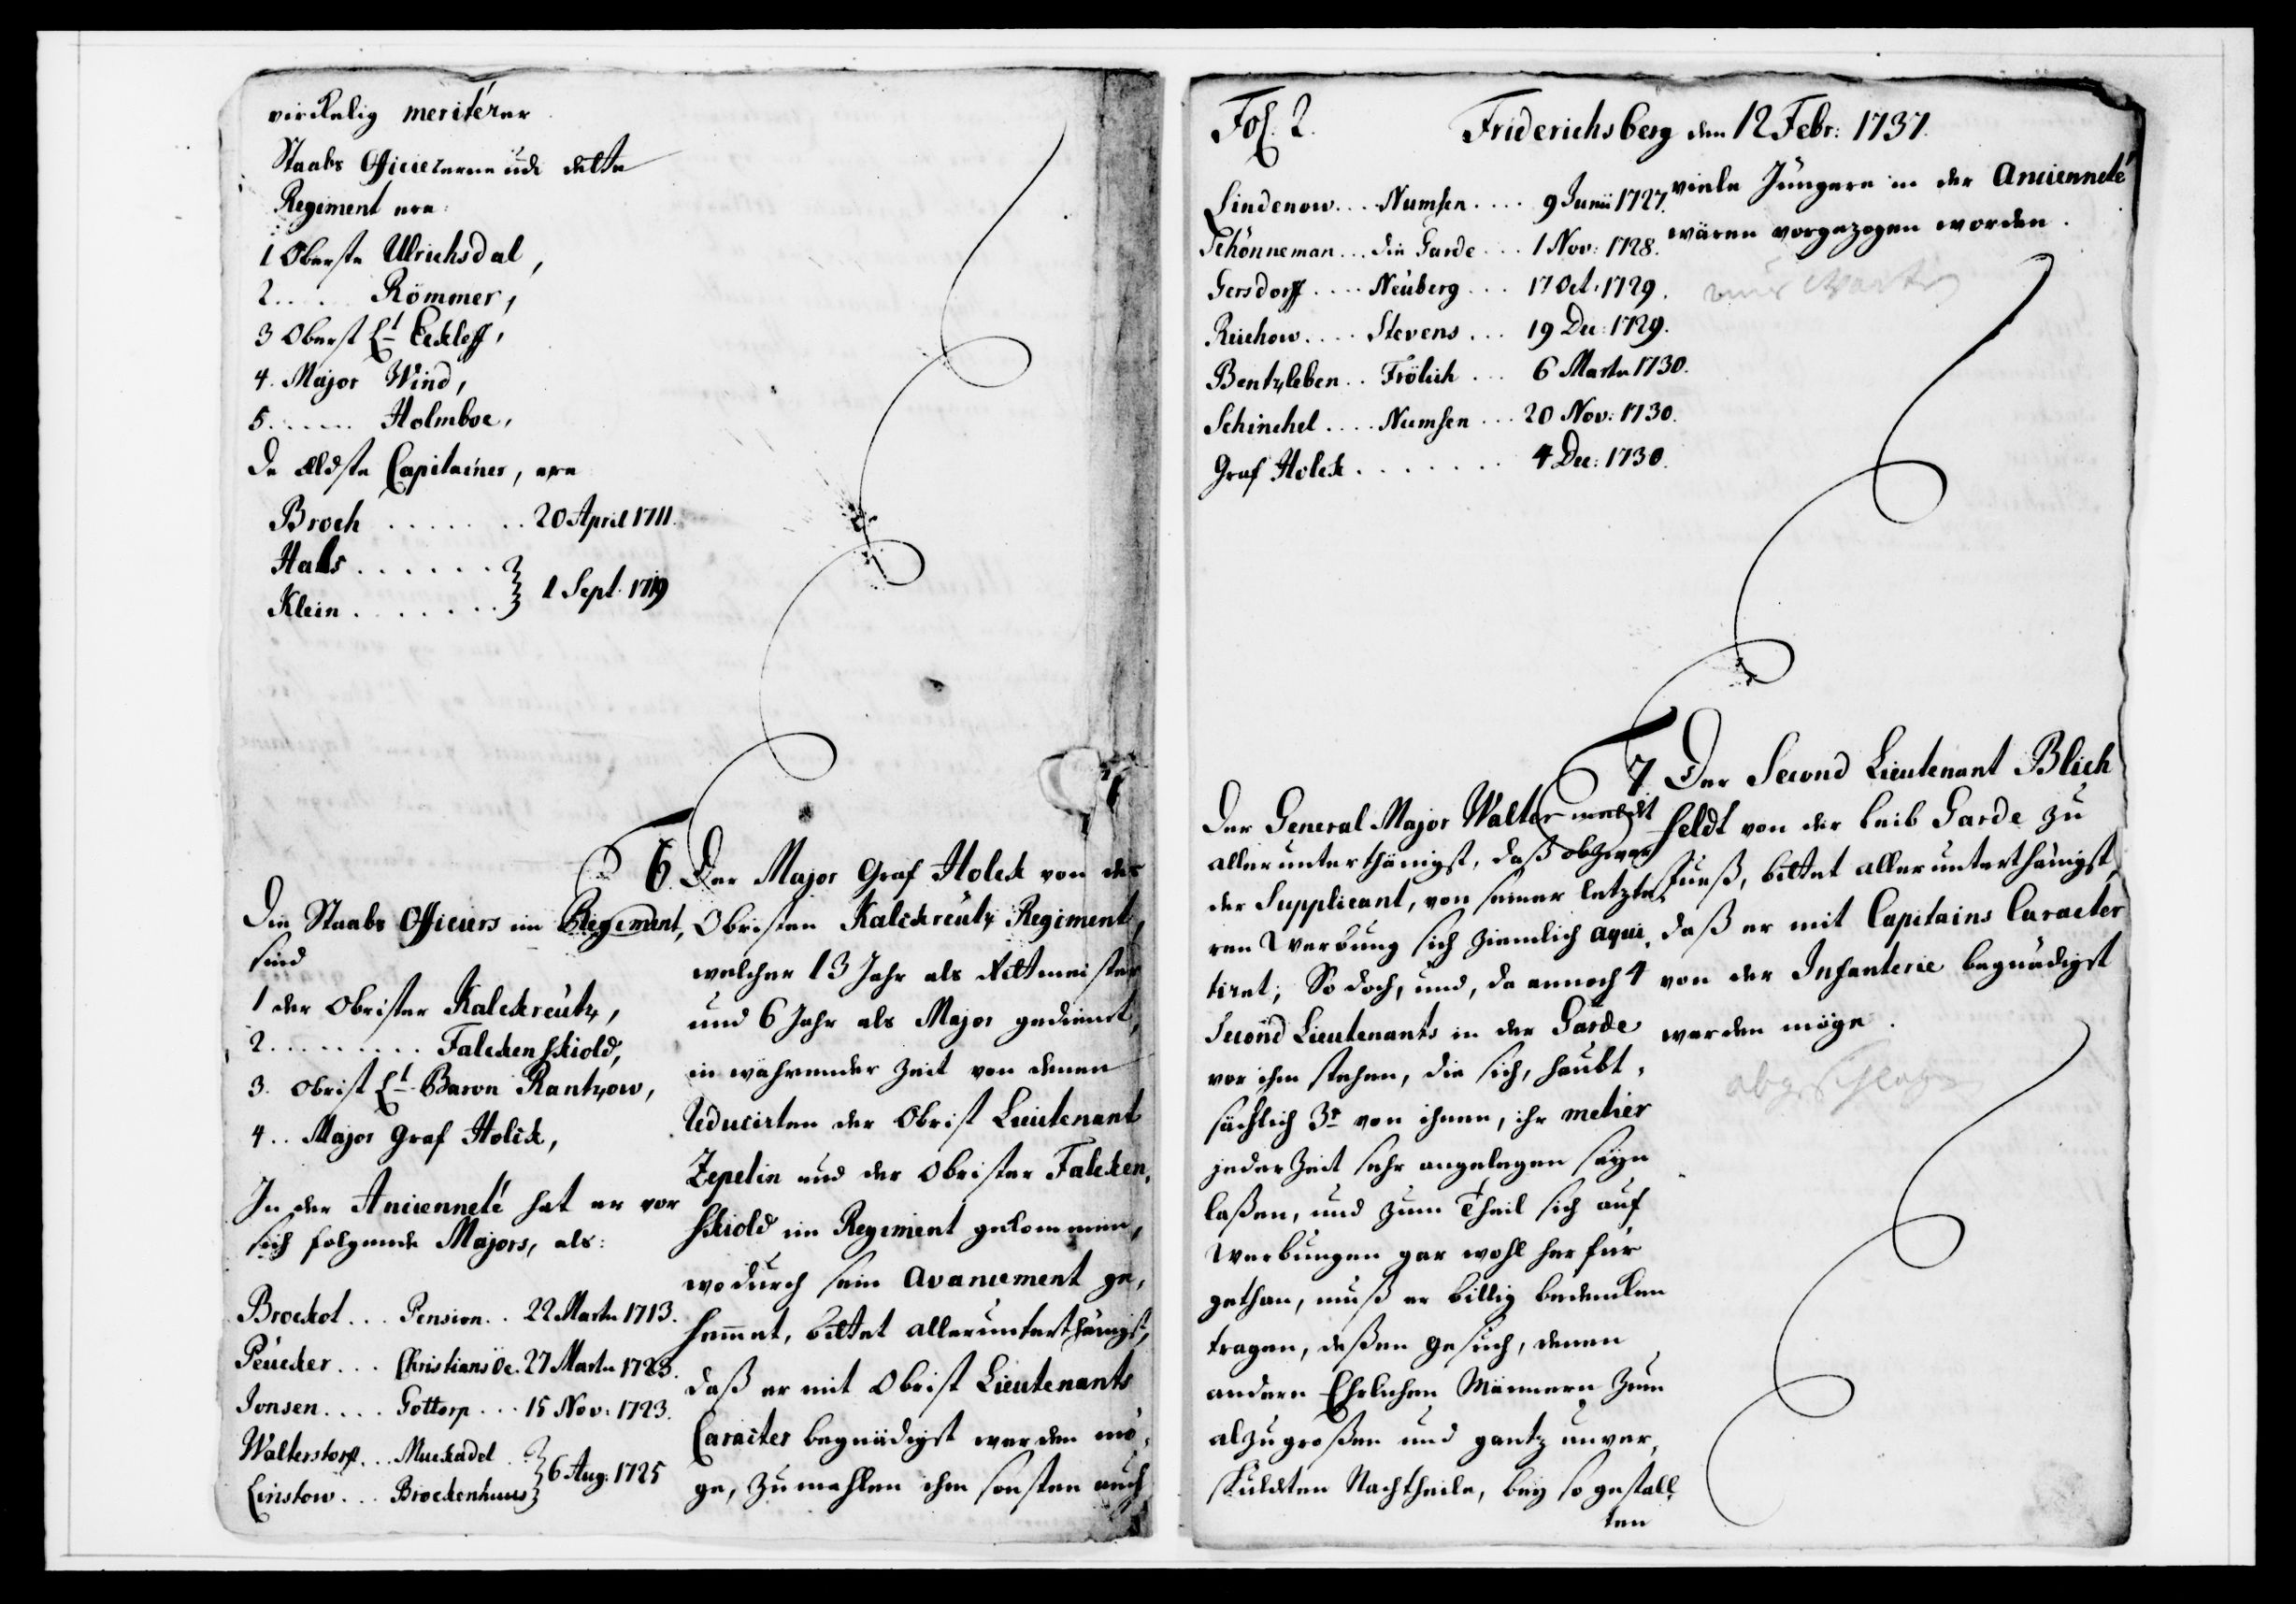 virkelig meriterer
Staabs Officiererne ude dette
Regiment ere:
1 Oberste Ulrichsdal,
2..... Römmer,
3 Oberst Lt Eckleff,
4. Major Wind,
5...... Holmboe,
De ældste Capitainer, ere
Broch ........ 20 April 1711.
Hals ......
Klein ....... } 1 Sept. 1719
6. Der Major Graf Holck von des
Obristen Kalckreutz Regiment,
welcher 13 Jahr als Rittmeister
und 6 Jahr als Major gedienet,
in währender Zeit von denen
Reducirten der Obrist Lieutenant
Zepelin und der Obrister Falcken-
skiold im Regiment gekommen,
wodurch sein Avancement ge-
hemmet, bittet allerunterthänigst,
daß er mit Obrist Lieutenants
Caracter begnädiget werden mö-
ge, zumahlen ihm sonsten auch
Die Staabs Officiers im Regiment,
sind
1 der Obrister Kalckreutz,
2......... Falckenskiold,
3. Obrist Lt Baron Rantzow,
4.. Major Graf Holck,
In der Ancienneté hat er vor
sich folgende Majors, als:
Brockot... Pension.. 22 Martii 1713.
Peucker... Christiansöe. 27 Martii 1723.
Jonsen.... Gottorp... 15 Nov: 1723.
Walterstorff... Muckadel
Linstow... Brockenhuus } 6 Aug: 1725
Fol. 2. Friderichsberg den 12 Febr: 1737.
Lindenow.... Numsen.... 9 Junii 1727.
Schönneman... die Garde... 1 Nov: 1728.
Gersdorff.... Neuberg... 17 Oct: 1729.
Reichow.... Stevens... 19 Dec: 1729.
Bentzleben.. Frölich... 6 Martii 1730.
Schinchel.... Numsen... 20 Nov: 1730.
Graf Holck........ 4 Dec: 1730.
viele Jüngere in der Ancienneté
wären vorgezogen worden.
7 Der Second Lieutenant Blich
feldt von der Leib Garde zu
Fueß, bittet allerunterthänigst,
daß er mit Capitains Caracter
von der Infanterie begnädiget
werden möge.
abgeschlagen
Der General Major Walter meldet
allerunterthänigst, daß obzwar
der Supplicant, von seiner letzte-
ren Werbung sich ziemlich aqui-
tiret; So doch, und, da annoch 4
Second Lieutenants in der Garde
vor ihm stehen, die sich, haubt-
sächlich 3r von ihnen, ihr metier
jeder Zeit sehr angelegen seyn
laßen, und zum Theil sich auf
Werbungen gar wohl herfür
gethan, muß er billig bedencken
tragen, deßen Gesuch, denen
andern Ehrlichen Männern zum
alzugroßen und gantz unver-
skuldten Nachtheile, bey so gestall-
ten